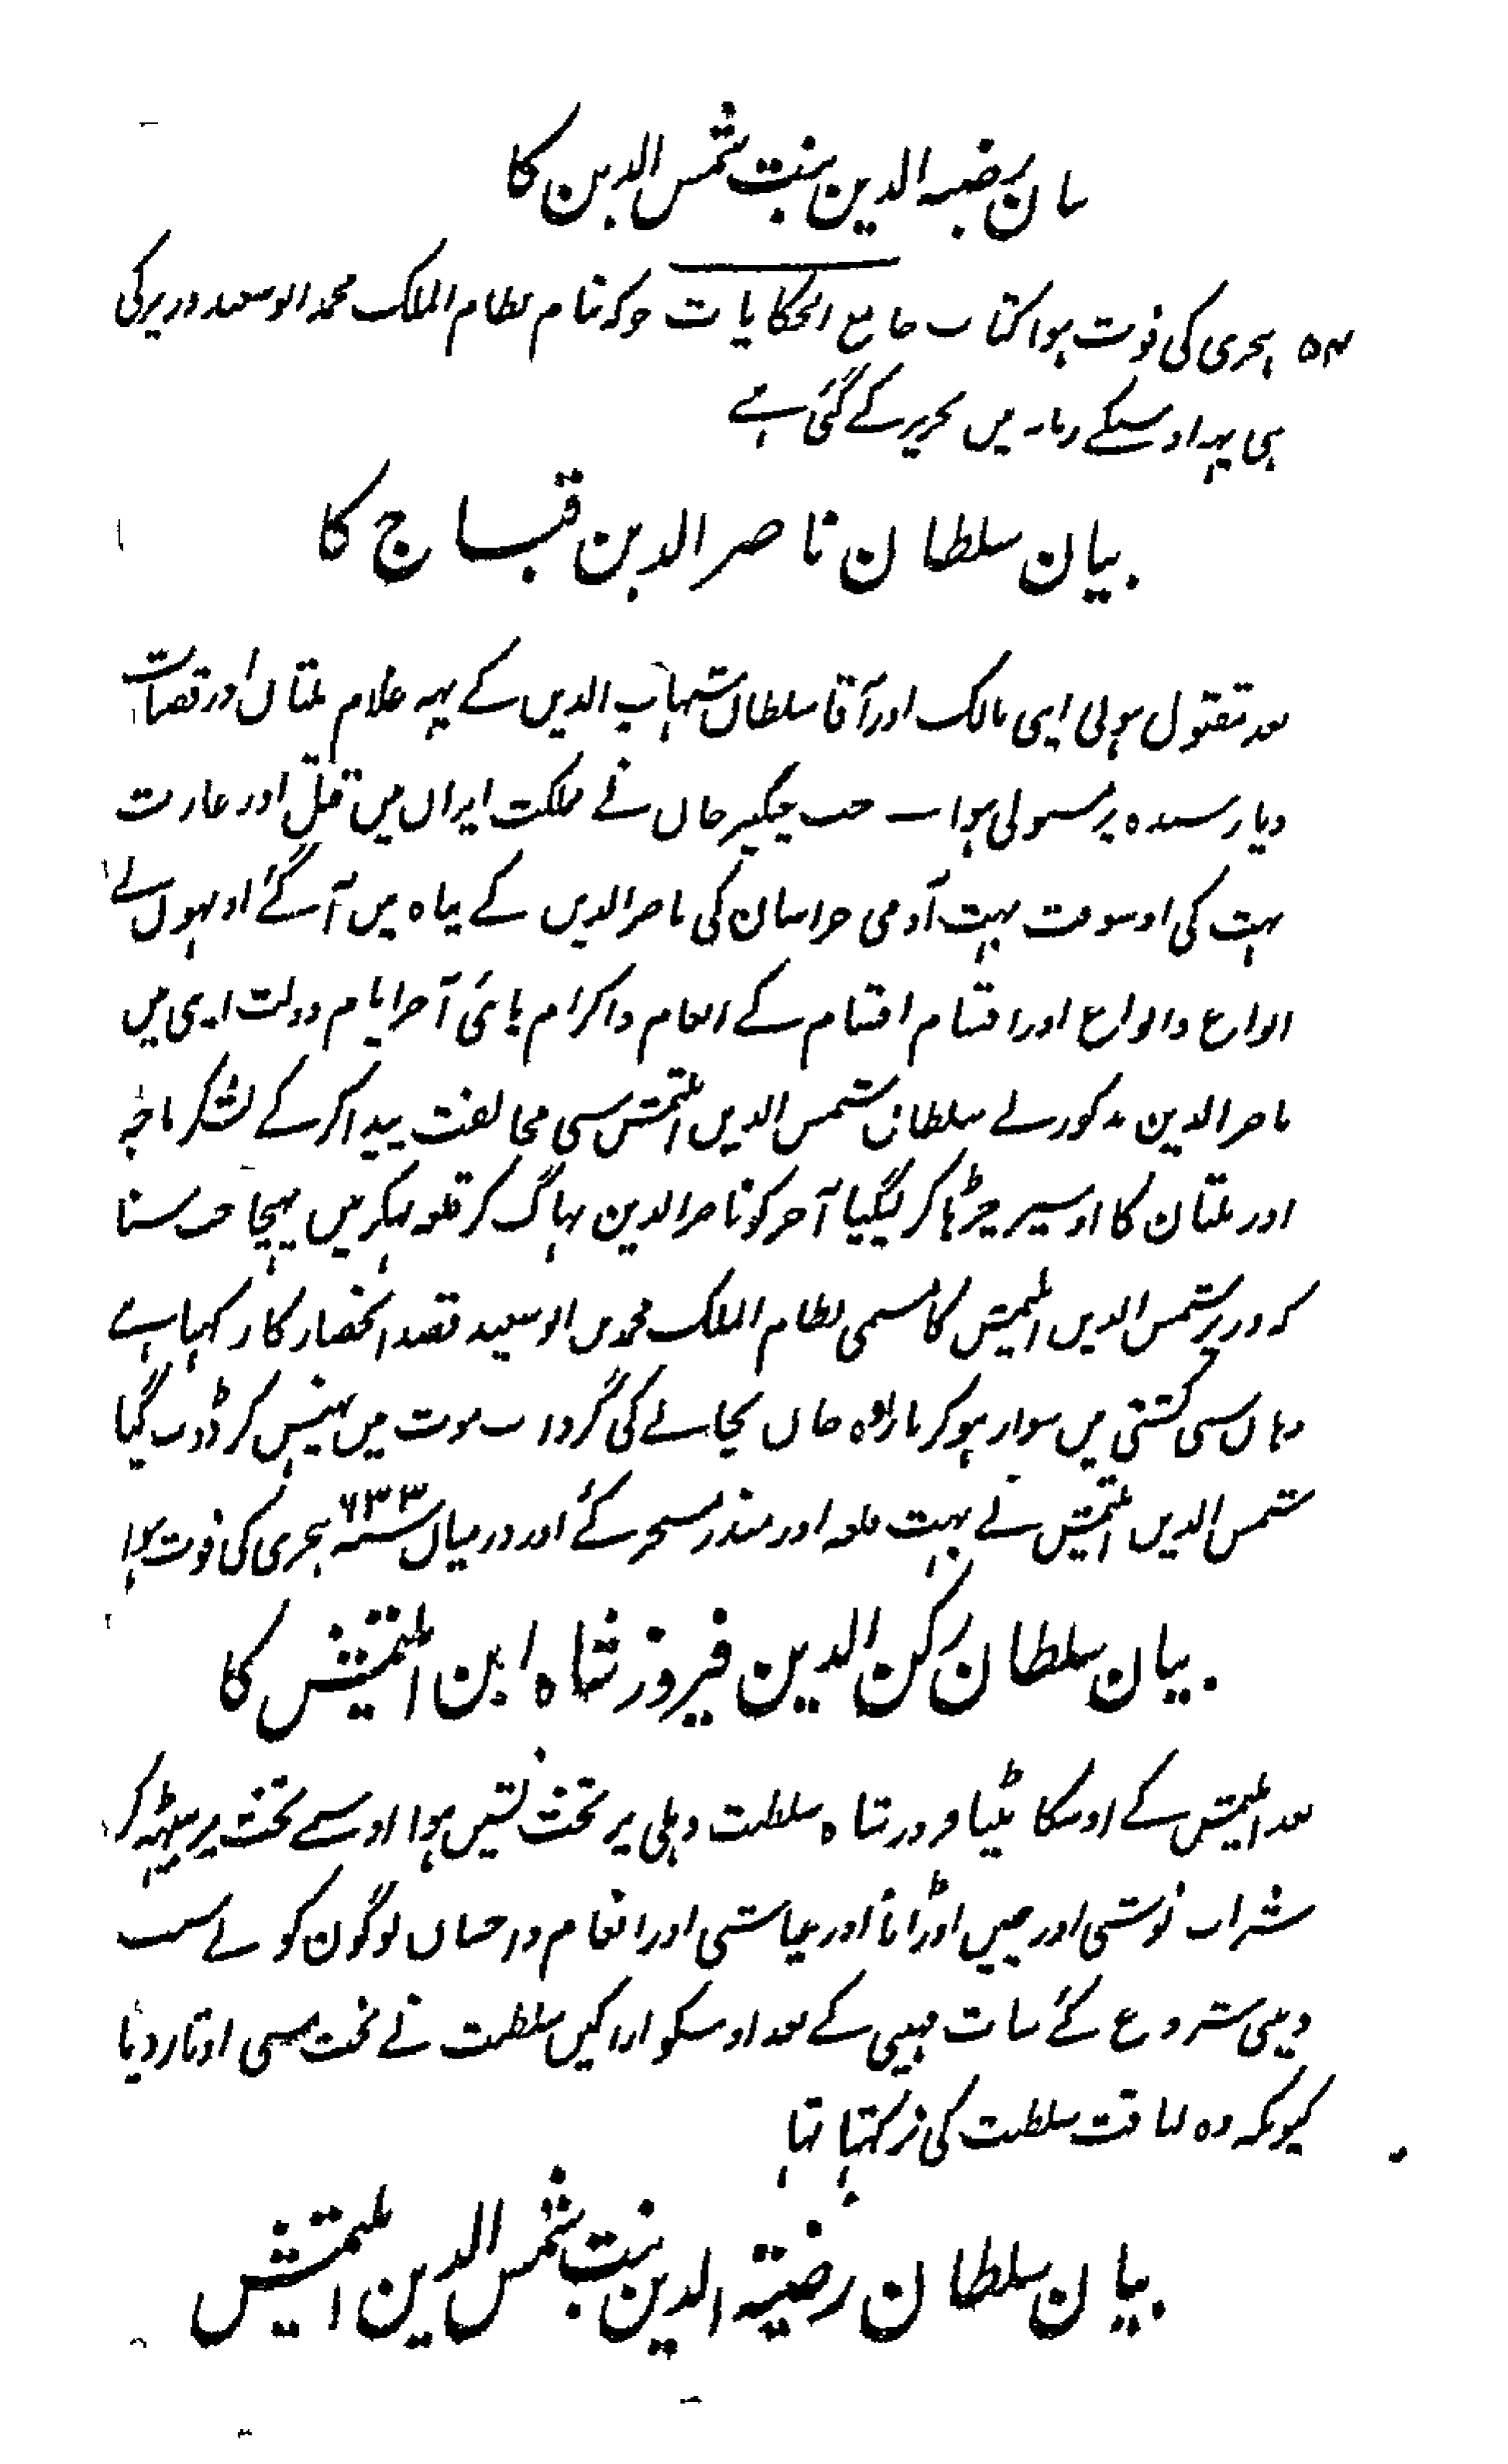 بیان رضیہ الدین بنت شمس الدین کا
۵۴ ہجری کی فوت ہوا کتاب جامع الحکایات جو کہ بنام نظام الملک محمد ابو سعید وزیر کی
ہی یہہ اوسکے زمانہ میں تحریر کے گئی ہے
بیان سلطان ناصر الدین قباج کا
بعد مقتول ہونی اپنی مالک اور آقا سلطان شہاب الدین کے یہہ غلام ملتان اور قصبات
دیار سندہ پر مستولی ہوا جب چنگیز خان نے مملکت ایران میں قتل اور غارت
بہت کی اوسوقت بہت آدمی خراسان کی ناصر الدین کے پناہ میں آ گئے اونہوں نے
انواع و انواع اور اقسام اقسام کے انعام و اکرام پائی آخر ایام دولت اپنی میں
ناصر الدین مذکور نے سلطان شمس الدین التمش سی مخالفت پیدا کر کے لشکر
اور ملتان کا اوسپر چڑہا کر لیگیا آخر کو ناصر الدین بہاگ کر قلعہ بہکر میں پہنچا جب سنا
کہ وزیر شمس الدین التمش کا مسمی نظام الملک محمد بن ابو سعید قصد انحصار کا رکہتا ہے
وہاں سی کشتی میں سوار ہو کر بارادہ جان بچانے کی گرداب موت میں پہنس کر ڈوب گیا
شمس الدین التمش نے بہت قلعہ اور مندر مسخر کئے اور درمیان سنہ ۶۳۳ ہجری کی فوت ہوا
بیان سلطان رکن الدین فیروز شاہ ابن التمش کا
بعد التمش کے اوسکا بیٹا فیروز شاہ سلطنت دہلی پر تخت نشین ہوا اوسے تخت پر بیٹہہ کر
شراب نوشی اور چین اوڑانا اور عیاشی اور انعام و احسان لوگون کو بے سبب
دینی شروع کئے سات مہینی کے بعد اوسکو اراکین سلطنت نے تخت سی اوتار دیا
کیونکہ وہ لیاقت سلطنت کی نرکہتا تہا
بیان سلطان رضیۃ الدین بنت شمس الدین التمش